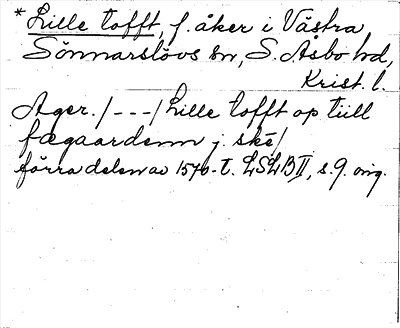 * Lille tofft, f. åker i Västra
Sönnarslövs sn, S. Åsbo hd,
Krist. l.
Ager. /---/ Lille tofft op tiill
fægaardenn j. ske/
förra delen av 1570-t. LSLB II, s. 9. orig.